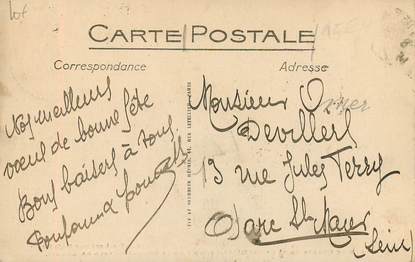 lot
CARTE POSTALE
Correspondance
Adresse
Nos meilleurs
vœux de bonne fête
Bons baisers à tous
Monsieur
Devillers
13 rue Jules Ferry
Parc St Maur
(Seine)